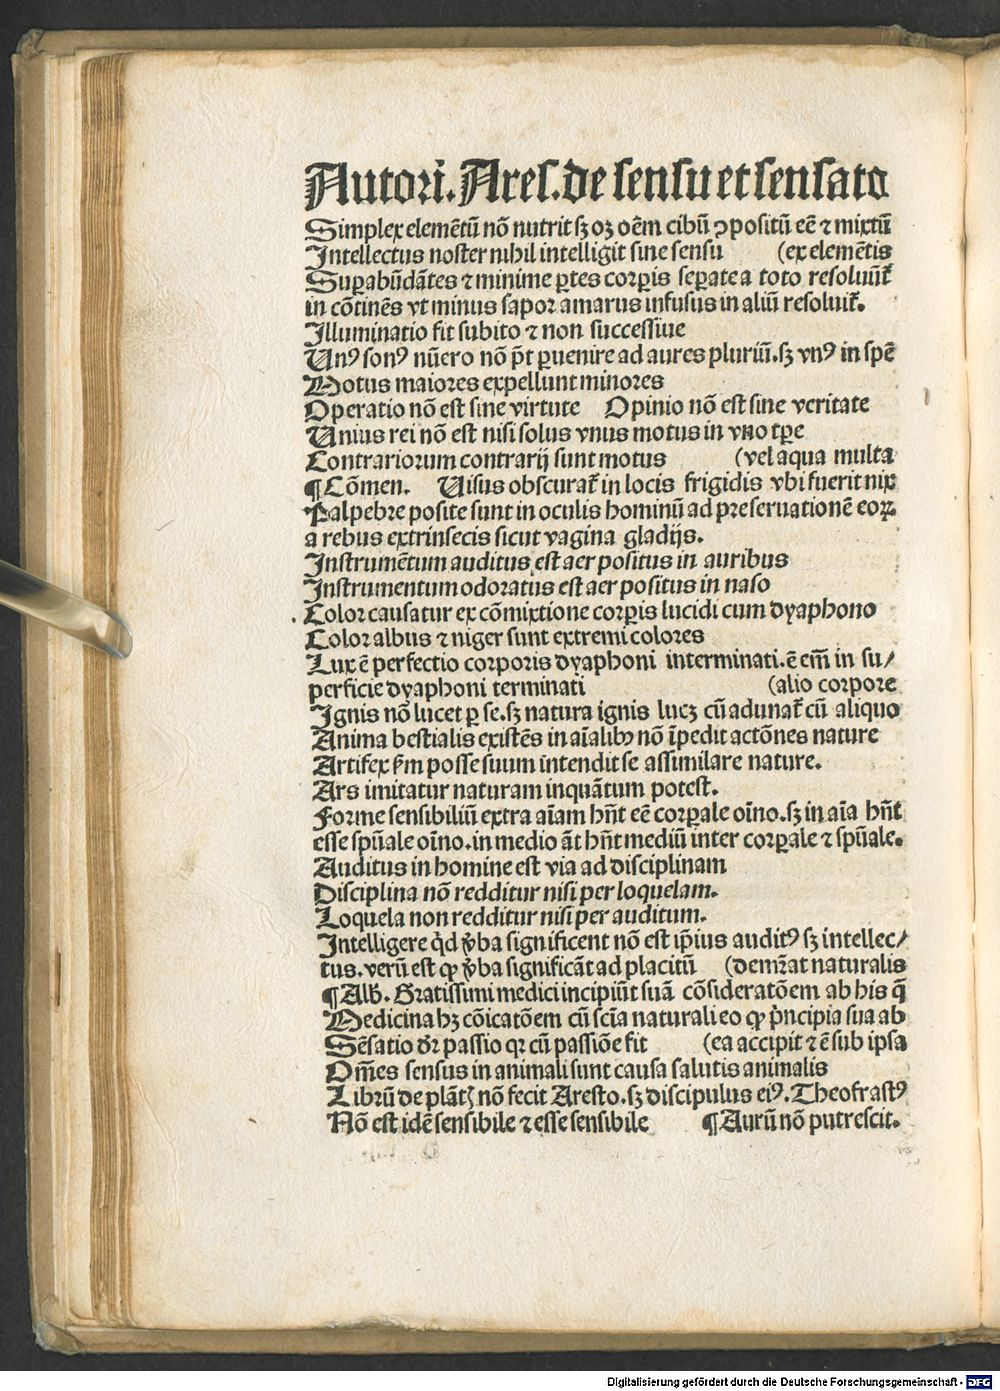 Autori. Ares. de sensu et sensato
Simplex elemẽtũ nõ nutrit sꝫ oꝫ oẽm cibũ ꝯpositũ eẽ ⁊ mixtũ
Intellectus noster nihil intelligit sine sensu (ex elemẽtis
Suꝑabũdãtes ⁊ minime ꝑtes corꝑis seꝑate a toto resoluũt᷑
in cõtinẽs vt minus sapor amarus infusus in aliũ resoluit᷑.
Illuminatio fit subito ⁊ non successiue
Unꝰ sonꝰ nũero nõ põt ꝑuenire ad aures pluriũ. sꝫ vnꝰ in spẽ
Motus maiores expellunt minores
Operatio nõ est sine virtute Opinio nõ est sine veritate
Unius rei nõ est nisi solus vnus motus in vno tꝑe
Contrariorum contrarij sunt motus (vel aqua multa
¶ Cõmen. Uisus obscurat᷑ in locis frigidis vbi fuerit nix
Palpebre posite sunt in oculis hominũ ad preseruationẽ eoꝝ
a rebus extrinsecis sicut vagina gladijs.
Instrumẽtum auditus est aer positus in auribus
Instrumentum odoratus est aer positus in naso
Color causatur ex cõmixtione corꝑis lucidi cum dyaphono
Color albus ⁊ niger sunt extremi colores
Lux ẽ perfectio corporis dyaphoni interminati. ẽ em̃ in su/
perficie dyaphoni terminati (alio corpore
Ignis nõ lucet ꝑ se. sꝫ natura ignis lucꝫ cũ adunat᷑ cũ aliquo
Anima bestialis existẽs in aĩalibꝰ nõ ĩpedit actõnes nature
Artifex ẜm posse suum intendit se assimilare nature.
Ars imitatur naturam inquãtum potest.
Forme sensibiliũ extra aĩam hñt eẽ corꝑale oĩno. sꝫ in aĩa hñt
esse spũale oĩno. in medio ãt hñt mediũ inter corꝑale ⁊ spũale.
Auditus in homine est via ad disciplinam
Disciplina nõ redditur nisi per loquelam.
Loquela non redditur nisi per auditum.
Intelligere qͥd v̾ba significent nõ est ip̃ius auditꝰ sꝫ intellec/
tus. verũ est qꝫ v̾ba significãt ad placitũ (demr̃at naturalis
¶ Alb. Gratissimi medici incipiũt suã cõsideratõem ab his q̃
Medicina hꝫ cõicatõem cũ scĩa naturali eo qꝫ pͥncipia sua ab
Sẽsatio dr̃ passio qꝛ cũ passiõe fit (ea accipit ⁊ ẽ sub ipsa
Om̃es sensus in animali sunt causa salutis animalis
Librũ de plãtꝭ nõ fecit Aresto. sꝫ discipulus eiꝰ. Theofrastꝰ
Nõ est idẽ sensibile ⁊ esse sensibile ¶ Aurũ nõ putrescit.
Digitalisierung gefördert durch die Deutsche Forschungsgemeinschaft - DFG